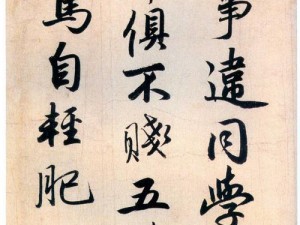 事違同學
俱不賤五
馬自輕肥